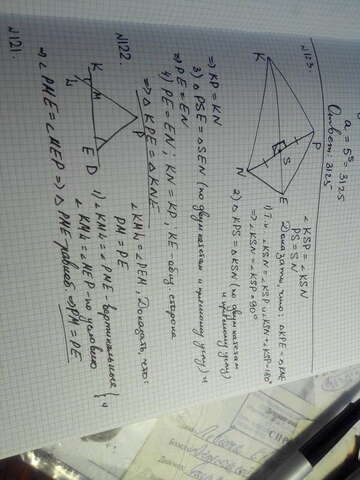 a = 5⁵ = 3125
Ответ: 3125
N123.
K
P
S
N
E
∠KSP = ∠KSN
PS = SN
Доказать, что: △KPE = △KNE
1) Т.к. ∠KSN = ∠KSP и ∠KSN + ∠KSP = 180°
⇒ ∠KSN = ∠KSP = 90°
2) △KPS = △KSN (по двум катетам
и прямому углу)
⇒ KP = KN
3) △PSE = △SEN (по двум катетам и прямому углу)
⇒ PE = EN
4) PE = EN; KN = KP; KE - общ. сторона
⇒ △KPE = △KNE
N122.
K
L
M
P
E
D
∠KML = ∠PEM, Доказать, что:
PM = PE
1) ∠KML = ∠PME - вертикальные
∠KML = ∠MEP - по условию
⇒ ∠PME = ∠MEP ⇒ △PME равноб. ⇒ PM = PE
N121.